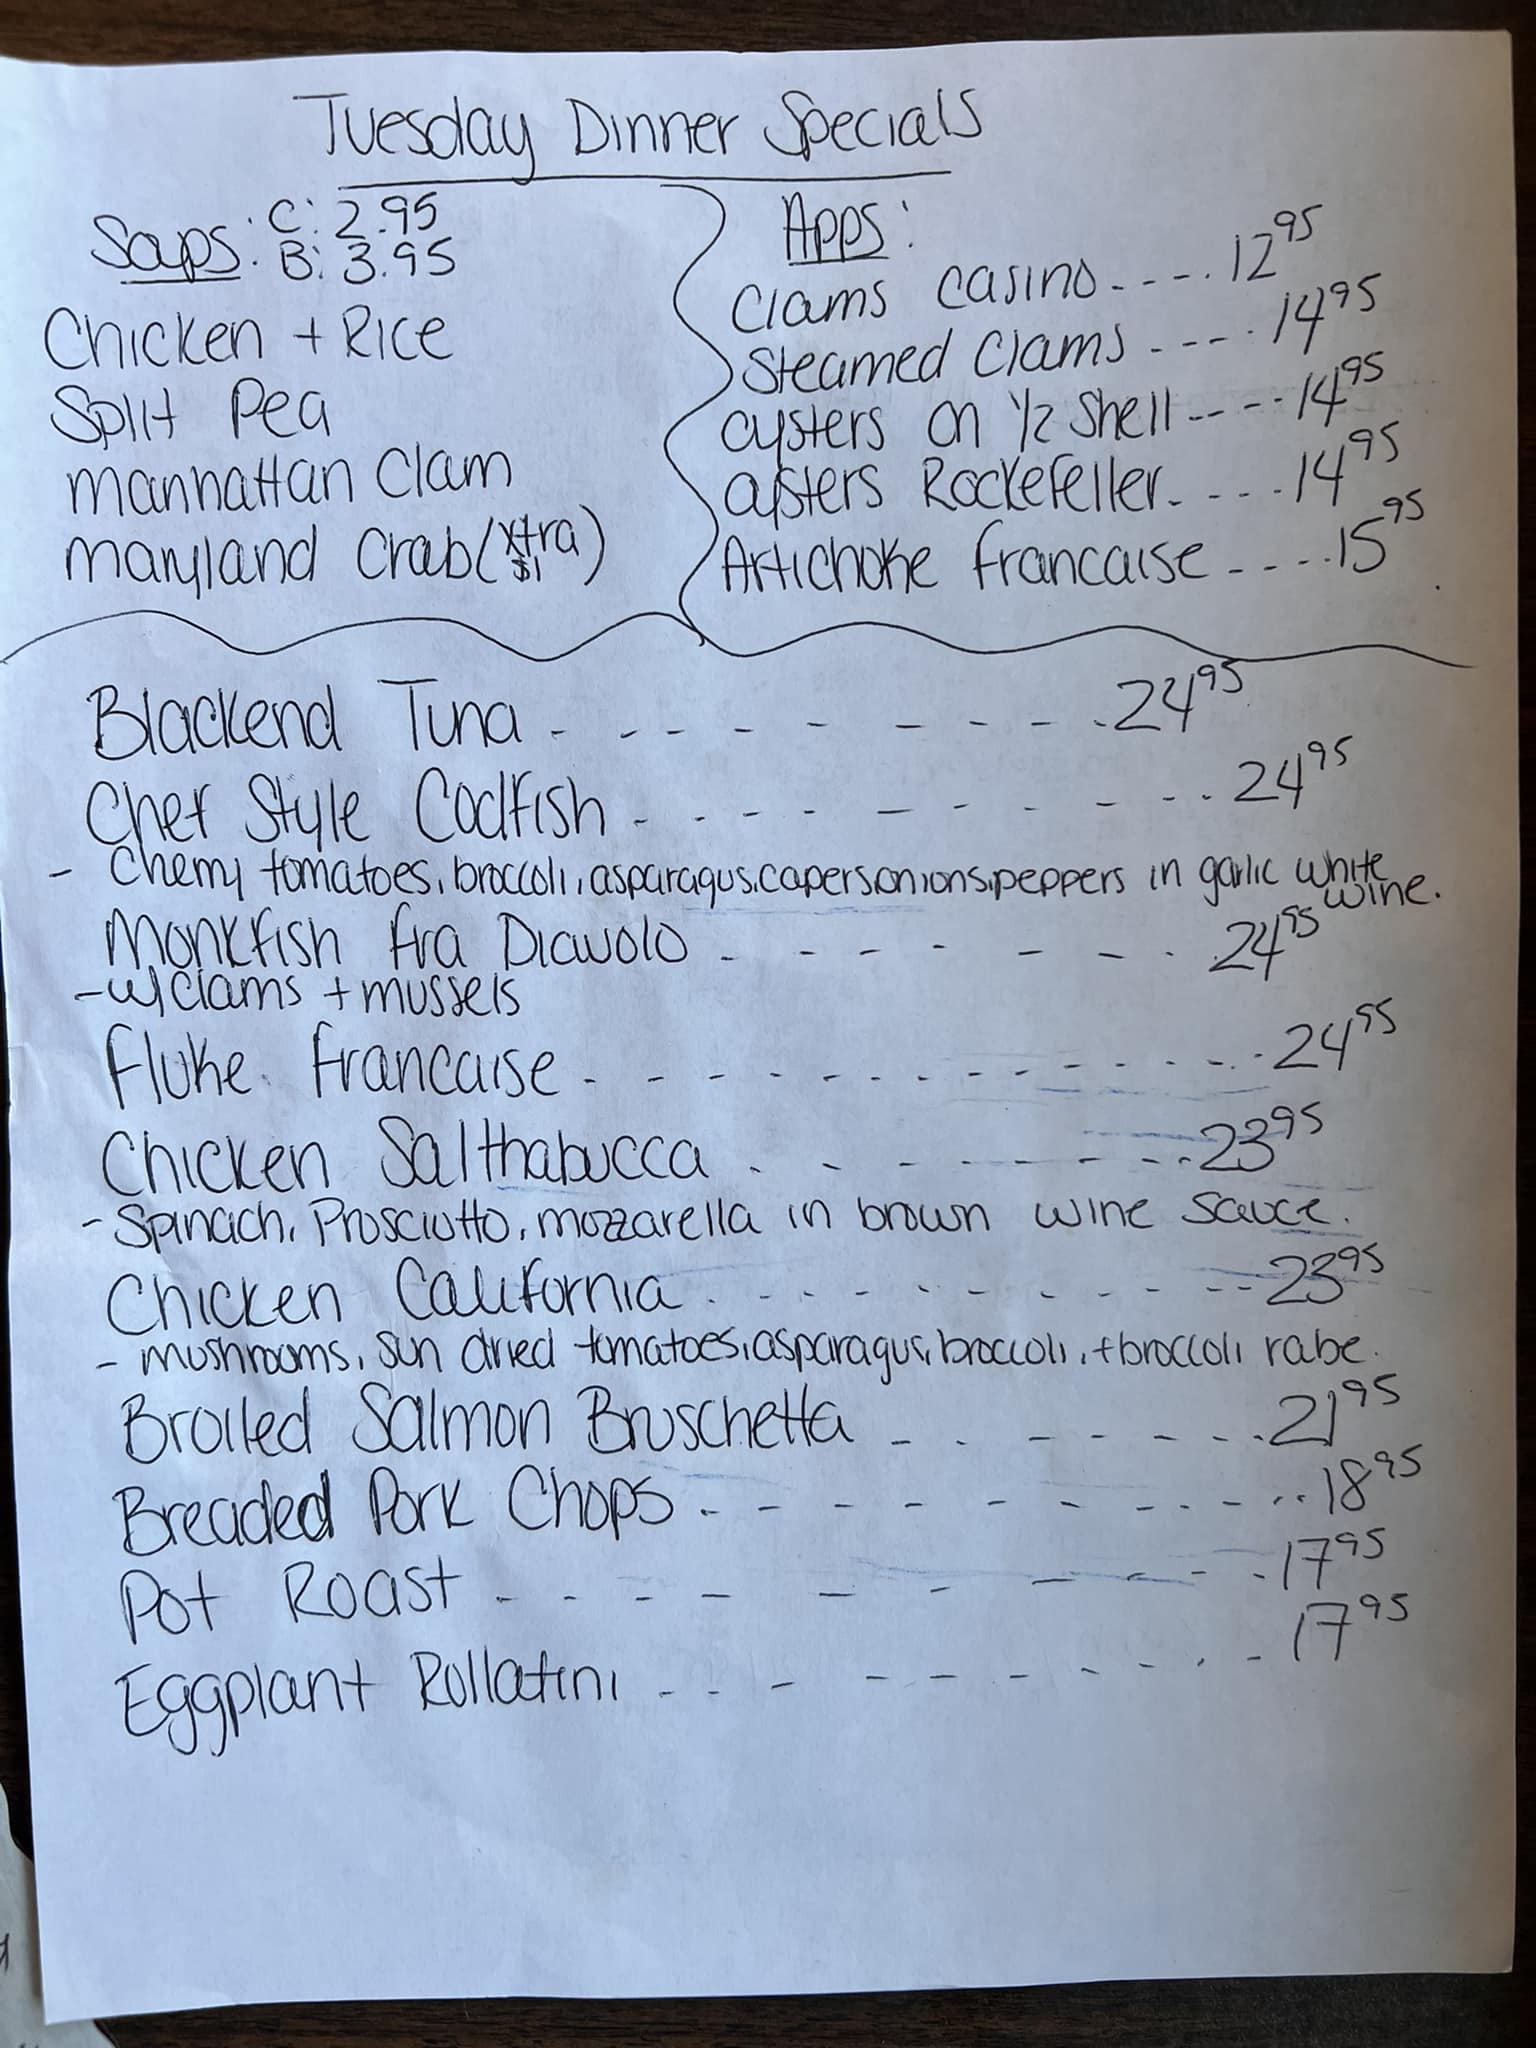 Tuesday Dinner Specials
Soups: C: 2.95
B: 3.95
Chicken + Rice
Split Pea
Manhattan Clam
Maryland Crab (xtra $1)
Apps:
Clams Casino----.1295
Steamed Clams ---.1495
oysters on 1/2 Shell----1495
oysters Rockefeller.----1495
Artichoke Francaise----.1595
Blackend Tuna - - - - - - - - .2495
Chef Style Codfish - - - - - - - - - .2495
- Cherry tomatoes, broccoli, asparagus, capers, onions, peppers in garlic white
wine.
Monkfish Fra Diavolo - - - - - - - .2495
- w/clams + mussels
Fluke Francaise - - - - - - - - - - - .2495
Chicken Salthabucca - - - - - - - .2395
- Spinach, Prosciutto, mozzarella in brown wine sauce.
Chicken California - - - - - - - - - -2395
- mushrooms, sun dried tomatoes, asparagus, broccoli, + broccoli rabe.
Broiled Salmon Bruschetta - - - - - - .2195
Breaded Pork Chops - - - - - - - - - ..1895
Pot Roast - - - - - - - - - .1795
Eggplant Rollatini - - - - - - - - - 1795